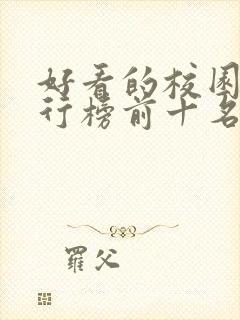 好看的校园
行榜前十名
羅父